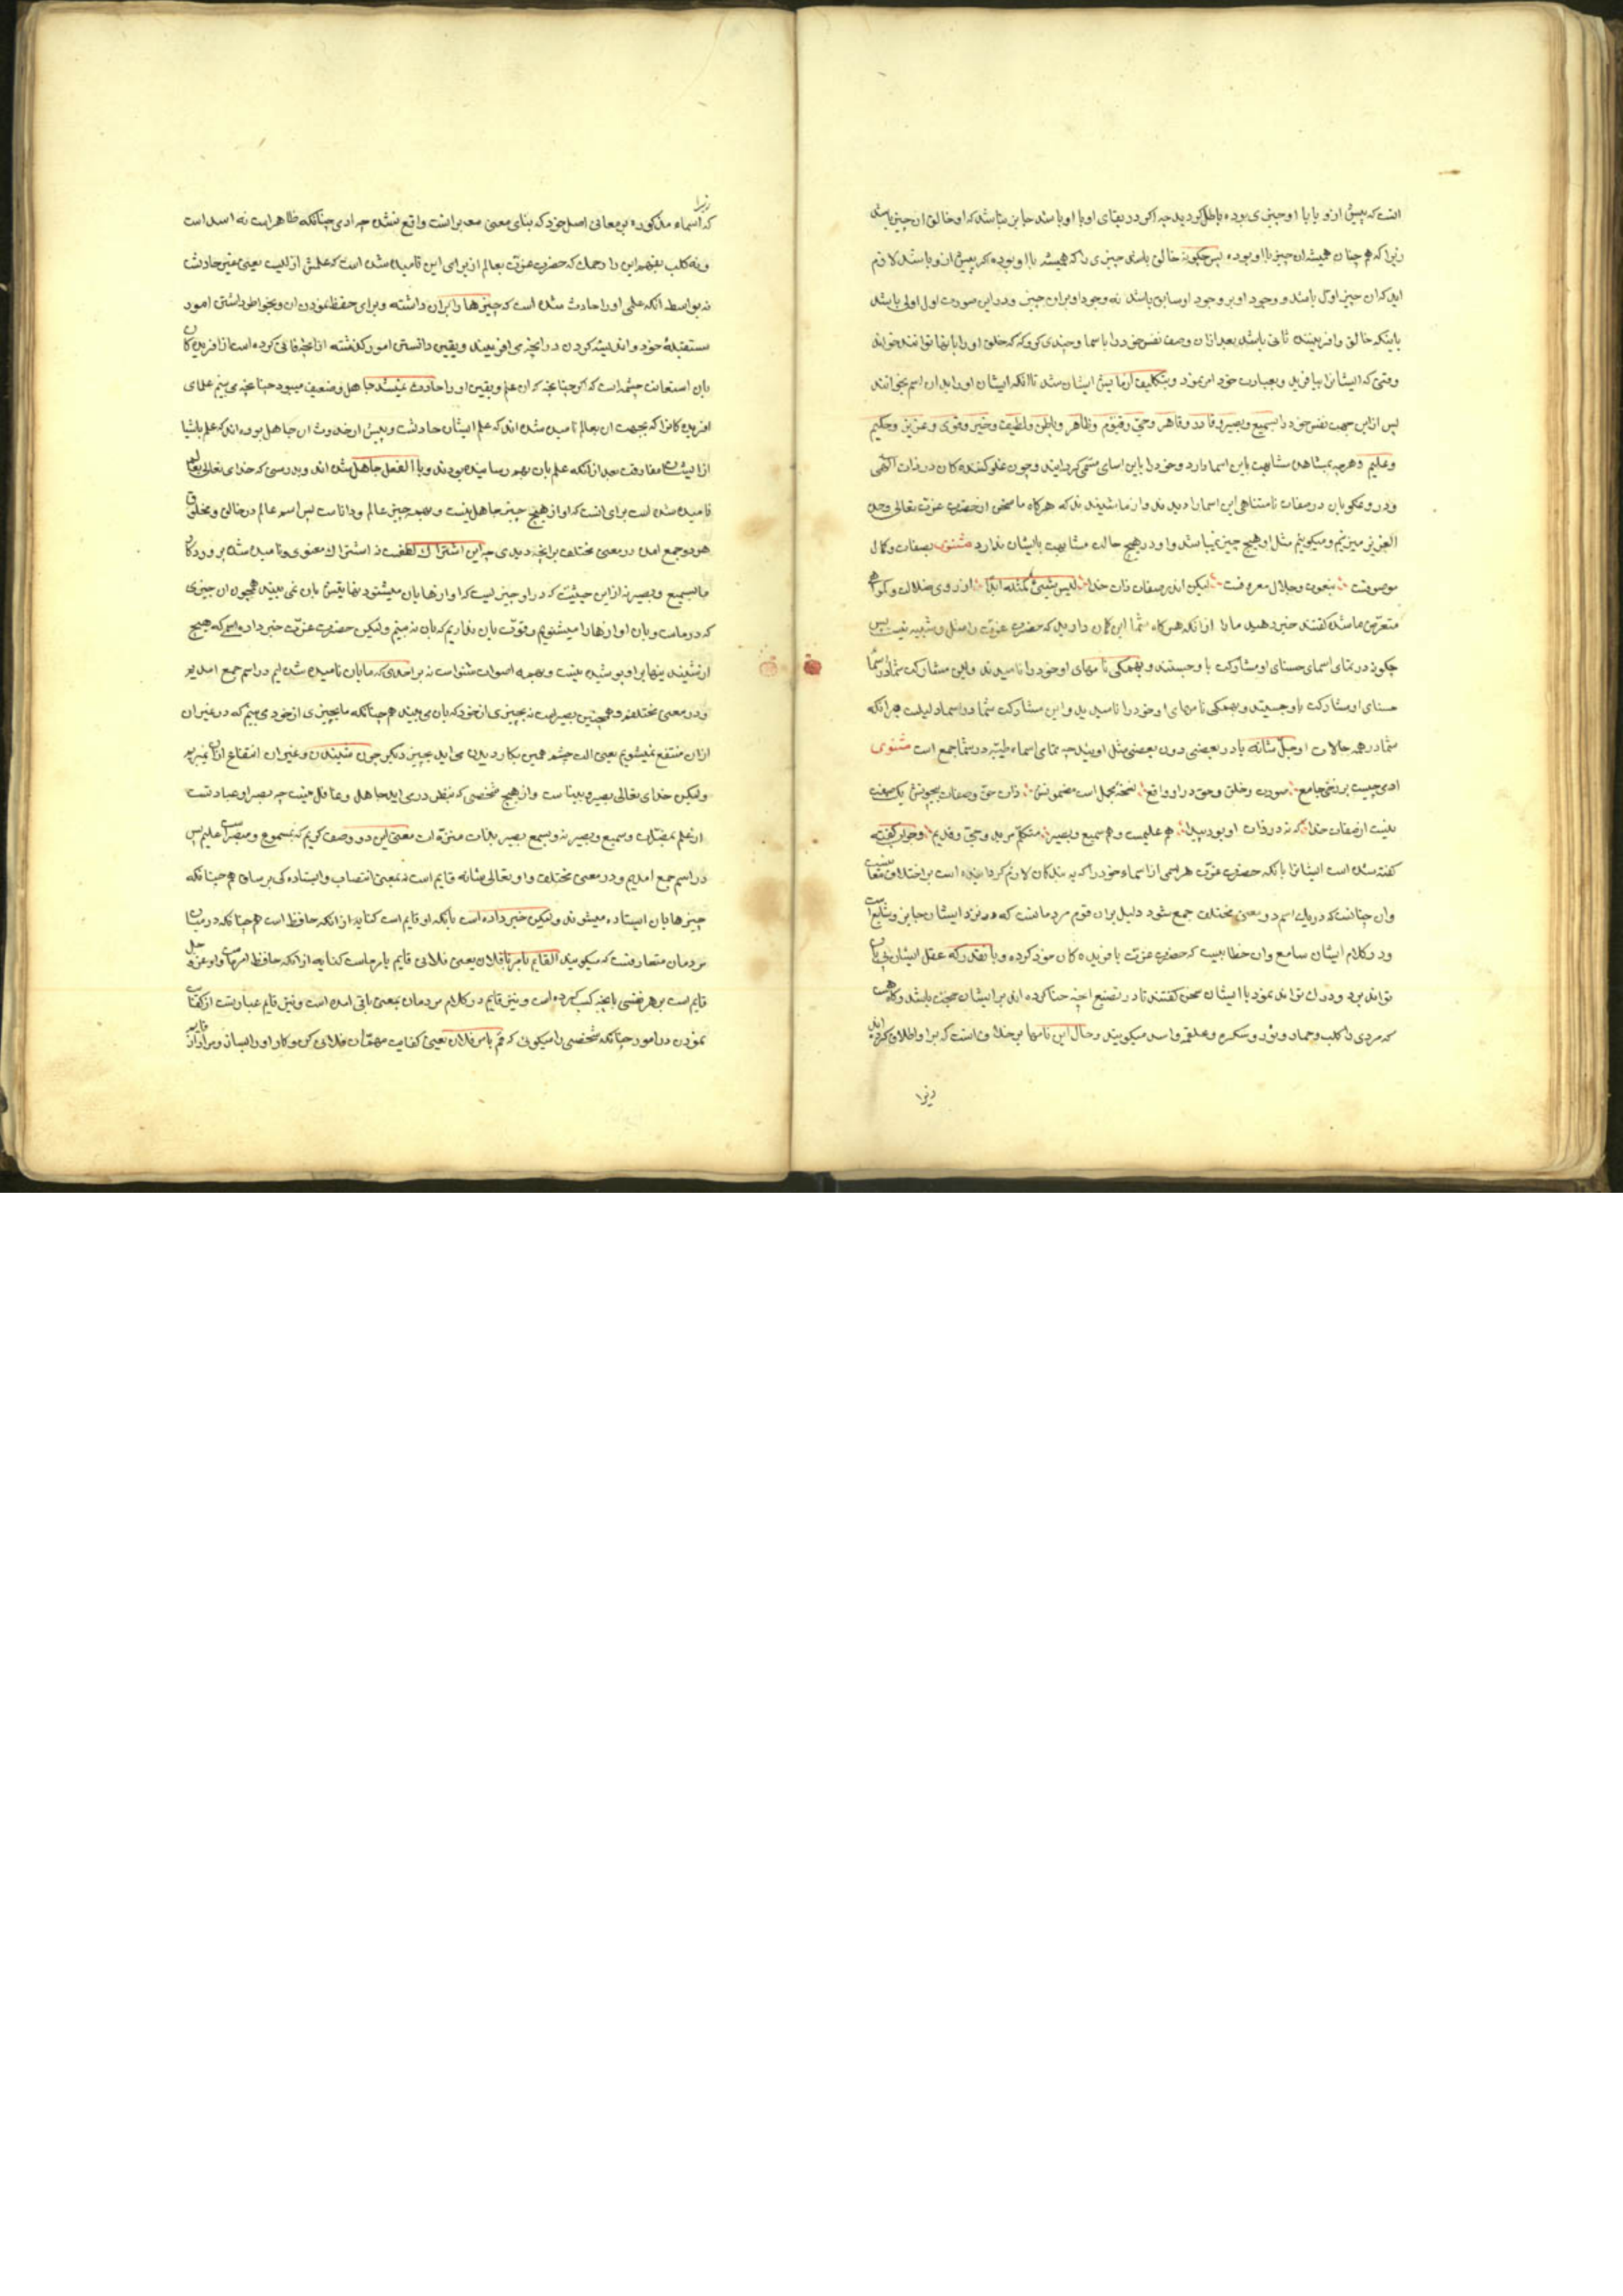 انست که پیش ازو یا با او چیزی بوده باطل گردید چه اگر در بقای او با او باشد جایز نباشد که او خالق ان چیز باشد
زیرا که هم چنان همیشه ان چیز با او بوده پس چگونه خالق باشد چیزی را که همیشه با او بوده و اگر پیش ازو باشد لازم
اید که ان چیز اول باشد و وجود او بر وجود او سابق باشد نه وجود او بر ان چیز و در این صورت اول اولی باشد
باینکه خالق و افریننده ثانی باشد بعد ازان وصف نفس خود را باسما و چندی کرد که خلق او را بانها توانند خواند
وقتی که ایشانرا بیافرید و بعبادت خود امر نمود و بتکلیف ازمایش ایشان شد تا انکه ایشان او را بدان اسم بخوانند
پس ازاین جهت نفس خود را سمیع و بصیر و قادر و قاهر و حی و قیوم و ظاهر و باطن و لطیف و خبیر و قوی و عزیز و حکیم
و علیم و هرچه بمشاهده مشابهت باین اسما دارد و خود را باین اسامی مسمی گردانید و چون غلو کننده کان در ذات الهی
و دروغ گویان در صفات نامتناهی این اسما را دیدند و از ما شنیدند که هرگاه ما سخن از حضرت عزت تعالی وحده
العزیز میزنیم و میگوییم مثل او هیچ چیز نمیباشد و او در هیچ حالت مشابهت بایشان ندارد مثنوی بصفات و کمال
موصوفست بنعوت و جلال معروفست لیکن اندر صفات ذات خدا لیس شیئ کمثله ابدا از روی ضلال و گمراهی
متعرض ما شده گفتند خبر دهید ما را از انکه هرگاه شما این گمان دارید که حضرت عزت را مثل و شبیه نیست پس
چگونه در تمام اسمای حسنای او مشارکت با او جستند و بهمگی نامهای او خود را نامیدند و این مشارکت شما در اسمای
حسنای او مشارکت با او جستید و بهمگی نامهای او خود را نامیدید و این مشارکت شما در اسما دلیلست بر انکه
شما در همه حالات او جل شانه یا در بعضی دون بعضی مثل اویید چه تمام اسماء طیبه در شما جمع است مثنوی
ادمی چیست برزخی جامع صورت خلق و حق در او واقع نسخه مجمل است مضمونش ذات حق و صفات بیچونش یک صفت
نیست از صفات خدا که نه در ذات او بود پیدا هم علیمست و هم سمیع و بصیر متکلم مرید و حی و قدیر و جواب گفته
گفته شده است ایشانرا بانکه حضرت عزت هر اسمی از اسماء خود را که به بندگان لازم گردانیده است بر اختلاف معانیست
وان چنانست که در یک اسم دو معنی مختلف جمع شود دلیل بران قوم مردمانست که در نزد ایشان جایز و شایع است
و در کلام ایشان سامع وان خطابیست که حضرت عزت بافریده کان خود کرده و بانقدر که عقل ایشان پی بان
تواند برد و درک تواند نمود با ایشان سخن گفتند تا در تضییع انچه ضایع کرده اند بر ایشان حجت باشد و گاه هست
که مردی را کلب و حمار و ثور و سکره و علقمه و اسد میگویند و حال این نامها بر خلاف انست که بر او اطلاق کرده اند
زیرا
زیرا
که اسماء مذکوره بر معانی اصل خود که بنای معنی معبر است واقع نشده چه ادمی چنانکه ظاهر است نه اسد است
و نه کلب بفهم این را رحمک که حضرت عزت بعالم از برای این نامیده شده است که علمش ازلیست یعنی غیر حادث
نه بواسطه انکه علمی او را حادث شده است که چیزها را بران داشته و برای حفظ نمودن ان و بخواطر داشتن امور
مستقبله خود و اندیشه کردن در انچه می افریند و یقین دانستن امور گذشته از انچه فانی کرده است از افریده کان
بان استعانت جسته است که اگر چنانچه که ان علم و یقین او را حادث نمیشد جاهل و ضعیف میبود چنانچه می بینم علمای
افریده کانرا که بجهت ان بعالم نامیده شده اند که علم ایشان حادثست و پیش از حدوث ان جاهل بوده اند که علم باشیا
از ایشان مفارقت بعد از انکه علم بان بهم رسانیده بودند و با الفعل جاهل شده اند و بدرستی که خدای تعالی بعالم
نامیده شده است برای انست که او از هیچ چیز جاهل نیست و بهمه چیز عالم و داناست پس اسم عالم در خالق و مخلوق
هردو جمع امده در معنی مختلف بر انچه دیدی چه این اشتراک لفظیست نه اشتراک معنوی و نامیده شده پروردگار
ما بسمیع و بصیر نه از این حیثیت که در او چیزیست که اوازها بان میشنود بنهایتش بان نمی بیند همچون ان چیزی
که در ماست و بان اوازها را میشنویم و قوت بان نداریم که بان ببینم ولیکن حضرت عزت خبر داده اسم که هیچ
از شنیدنیها بر او پوشیده نیست و بهمه اصوات شنواست نه بر احدی که ما بان نامیده شده ایم در اسم جمع امدیم
و در معنی مختلف و همچنین بصیر است نه بچیزی از خود که بان می بیند هم چنانکه ما بچیزی از خود می بینم که در غیر ان
ازان منتفع نمیشویم یعنی الت چشم همین بکار دیدن می اید بچیز دیگر چون شنیدن و غیر ان انتفاع ازان نمیبریم
ولیکن خدای تعالی بصیر و بیناست و از هیچ شخصی که بنظر درمی اید جاهل و غافل نیست چه بصر او عبارتست
از علم بمبصرات و سمیع و بصیر نه بسمع و بصر بلکه منزه است معنی این دو وصف گوییم که بمسموع و مبصر اعلم است پس
در اسم جمع امدیم و در معنی مختلف و او تعالی شانه قایم است نه بمعنی انتصاب و ایستاده گی بر ساق هم چنانکه
چیزها بان ایستاده میشوند ولیکن خبر داده است بانکه او قایم است کنایه از انکه حافظ است هم چنانکه در میان
مردمان متعارفست که میگویند القایم بامرنا فلان یعنی فلانی قایم بامر ماست کنایه از انکه حافظ امر ماست و او عز و جل
قایم است بر هر نفسی بانچه کسب کرده است و نیز قایم در کلام مردمان بمعنی باقی امده است و نیز قایم عبارتست از کفایت
نمودن در امور چنانکه شخصی را میگوئی که قم بامر فلان یعنی کفایت مهمات فلانی کن و کار او را بساز